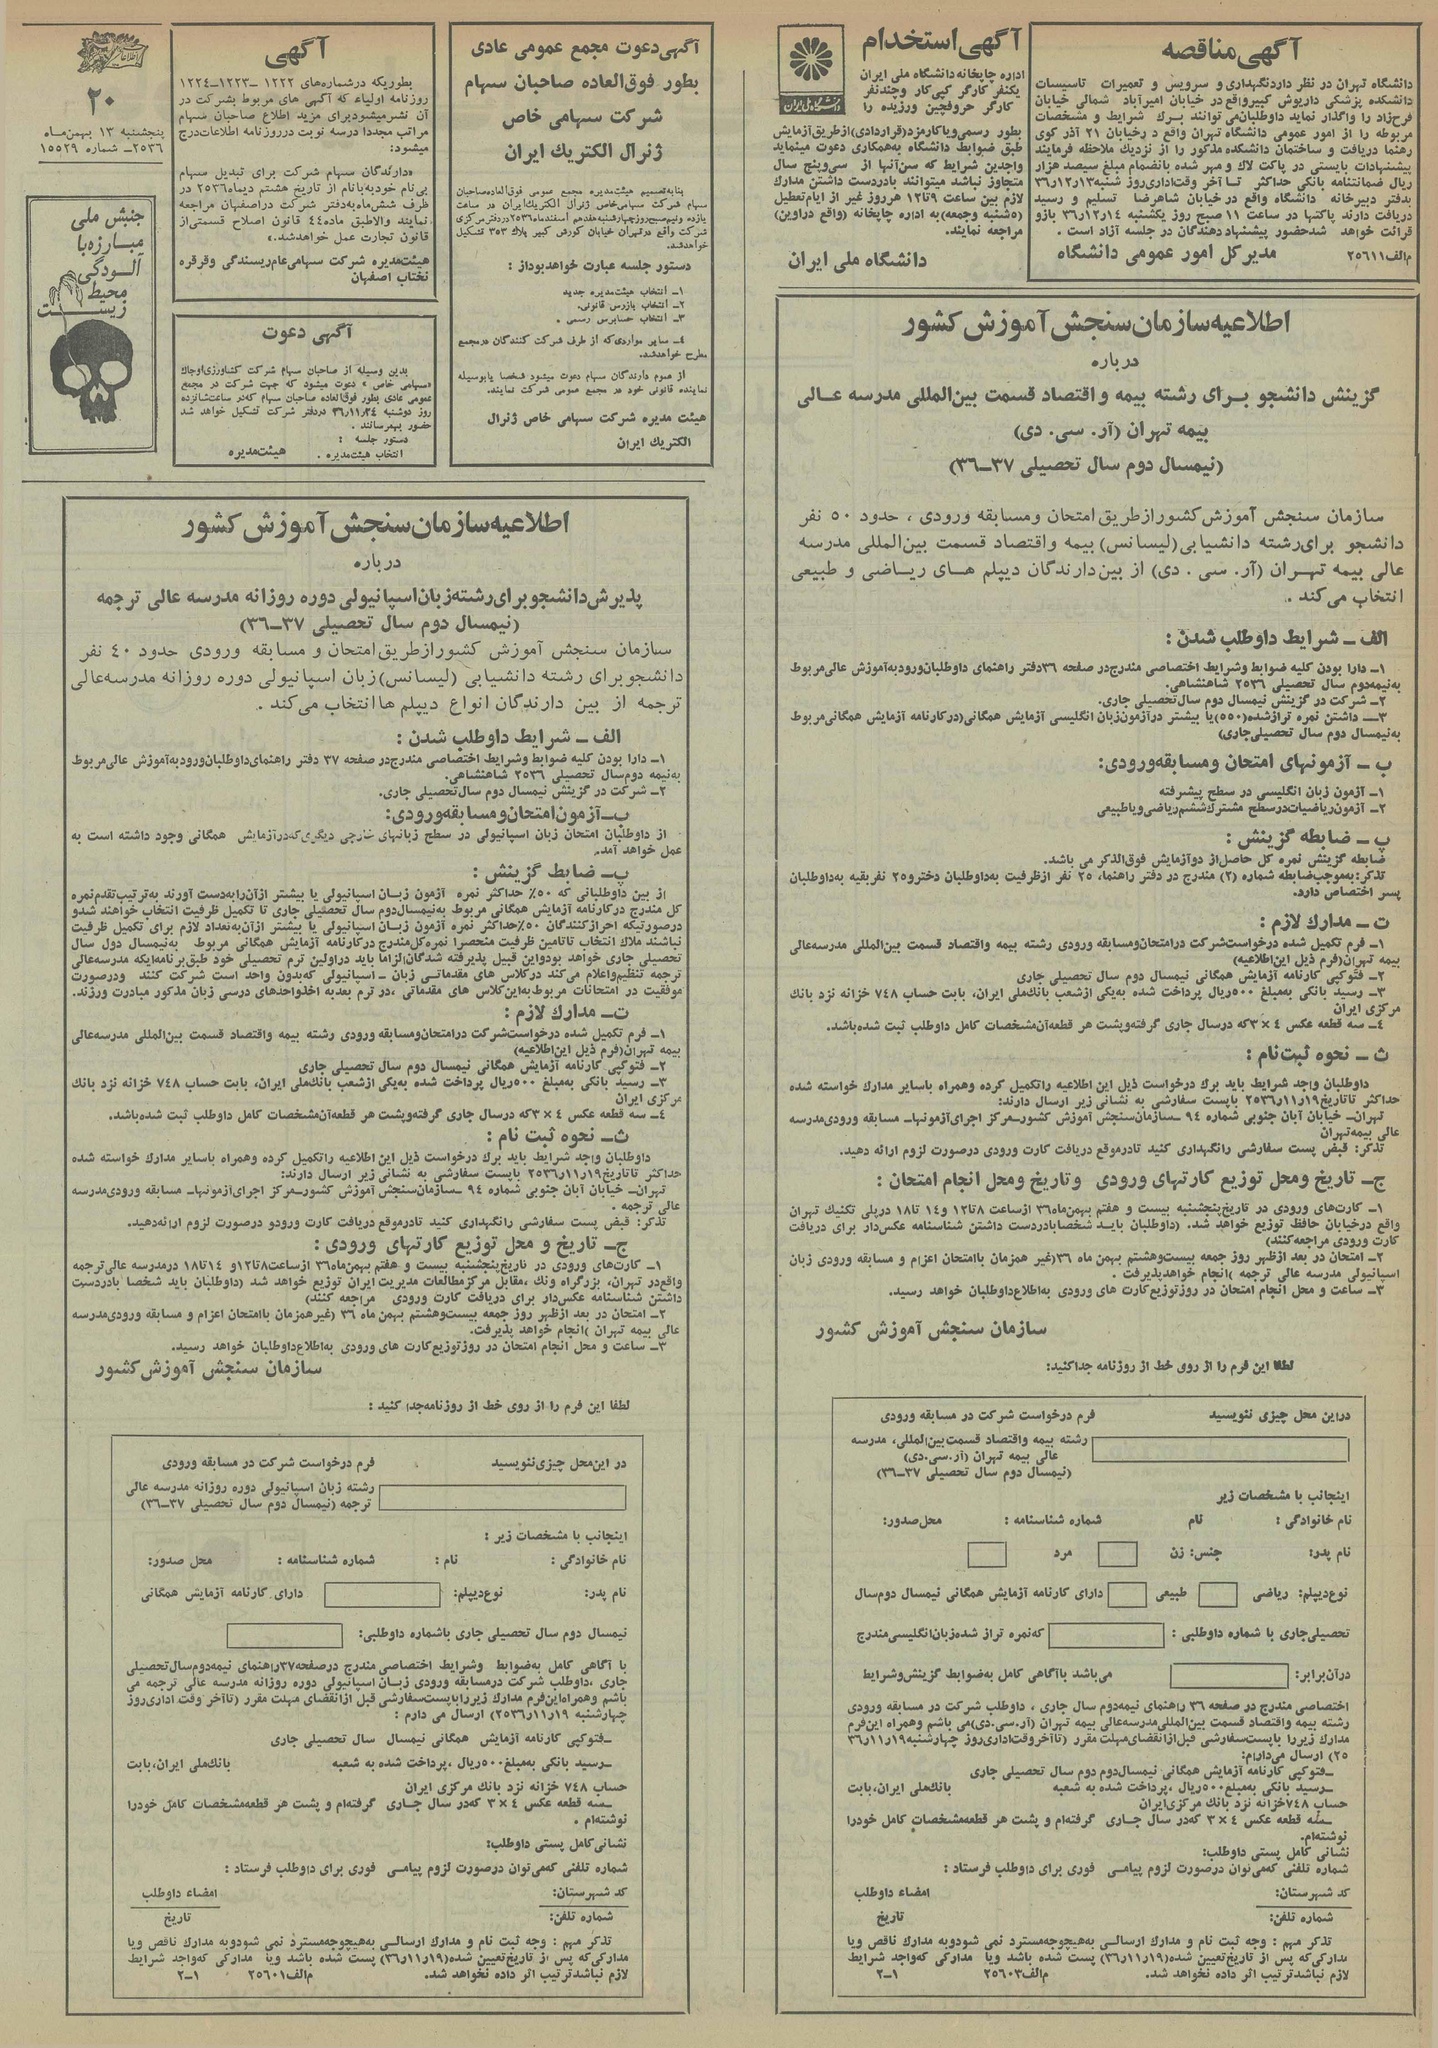 آگهی مناقصه
دانشگاه تهران در نظر دارد نگهداری و سرویس و تعمیرات تاسیسات
دانشکده پزشکی داریوش کبیر واقع در خیابان امیرآباد شمالی خیابان
فرح‌زاد را واگذار نماید داوطلبان می توانند برگ شرایط و مشخصات
مربوطه را از امور عمومی دانشگاه تهران واقع در خیابان ۲۱ آذر کوی
رهنما دریافت و ساختمان دانشکده مذکور را از نزدیک ملاحظه فرمایند
پیشنهادات بایستی در پاکت لاک و مهر شده بانضمام مبلغ سیصد هزار
ریال ضمانتنامه بانکی حداکثر تا آخر وقت اداری روز شنبه ۱۳ر۱۲ر۳۶
بدفتر دبیرخانه دانشگاه واقع در خیابان شاهرضا تسلیم و رسید
دریافت دارند پاکتها در ساعت ۱۱ صبح روز یکشنبه ۱۴ر۱۲ر۳۶ باز و
قرائت خواهد شد حضور پیشنهاد دهندگان در جلسه آزاد است .
م‌الف ۲۵۶۱۱
مدیر کل امور عمومی دانشگاه
آگهی استخدام
اداره چاپخانه دانشگاه ملی ایران
یکنفر کارگر کپی کار وچندنفر
کارگر حروفچین ورزیده را
بطور رسمی ویا کارمزد (قراردادی) از طریق آزمایش
طبق ضوابط دانشگاه به‌همکاری دعوت مینماید
واجدین شرایط که سن آنها از سی‌وپنج سال
متجاوز نباشد میتوانند بادردست داشتن مدارک
لازم بین ساعت ۹ تا ۱۲ هر روز غیر از ایام تعطیل
(۵شنبه وجمعه) به اداره چاپخانه (واقع در اوین)
مراجعه نمایند.
دانشگاه ملی ایران
دانشگاه ملی ایران
آگهی دعوت مجمع عمومی عادی
بطور فوق‌العاده صاحبان سهام
شرکت سهامی خاص
ژنرال الکتریک ایران
بنا به تصمیم هیئت مدیره مجمع عمومی فوق‌العاده صاحبان
سهام شرکت سهامی خاص ژنرال الکتریک ایران در ساعت
یازده ونیم صبح روز چهارشنبه هفدهم اسفندماه ۲۵۳۶ در دفتر مرکزی
شرکت واقع در تهران خیابان کورش کبیر پلاک ۳۵۳ تشکیل
خواهد شد.
دستور جلسه عبارت خواهد بود از :
۱ـ انتخاب هیئت مدیره جدید
۲ـ انتخاب بازرس قانونی.
۳ـ انتخاب حسابرس رسمی .
۴ـ سایر مواردی که از طرف شرکت کنندگان در مجمع
مطرح خواهد شد.
از عموم دارندگان سهام دعوت میشود شخصا یا بوسیله
نماینده قانونی خود در مجمع عمومی شرکت نمایند.
هیئت مدیره شرکت سهامی خاص ژنرال
الکتریک ایران
آگهی
بطوریکه در شماره‌های ۱۲۲۲ ـ ۱۲۲۳ـ ۱۲۲۴
روزنامه اولیاء که آگهی های مربوط بشرکت در
آن نشر میشود برای مزید اطلاع صاحبان سهام
مراتب مجددا در سه نوبت در روزنامه اطلاعات درج
میشود:
«دارندگان سهام شرکت برای تبدیل سهام
بی‌نام خود به بانام از تاریخ هشتم دیماه ۲۵۳۶ در
ظرف شش ماه به دفتر شرکت در اصفهان مراجعه
نمایند والا طبق ماده ۴۴ قانون اصلاح قسمتی از
قانون تجارت عمل خواهد شد.»
هیئت مدیره شرکت سهامی عام ریسندگی وقرقره
نختاب اصفهان
آگهی دعوت
بدین وسیله از صاحبان سهام شرکت کشاورزی اوجاک
«سهامی خاص» دعوت میشود که جهت شرکت در مجمع
عمومی عادی بطور فوق‌العاده صاحبان سهام که در ساعت شانزده
روز دوشنبه ۲۴ر۱۱ر۳۶ در دفتر شرکت تشکیل خواهد شد
حضور بهمرسانند .
دستور جلسه :
انتخاب هیئت مدیره .
هیئت مدیره
اطلاعات
۲۰
پنجشنبه ۱۳ بهمن ماه
۲۵۳۶ـ شماره ۱۵۵۲۹
جنبش ملی
مبارزه با
آلودگی
محیط
زیست
اطلاعیه سازمان سنجش آموزش کشور
درباره
گزینش دانشجو برای رشته بیمه و اقتصاد قسمت بین‌المللی مدرسه عالی
بیمه تهران (آر. سی. دی)
(نیمسال دوم سال تحصیلی ۳۷ـ۳۶)
سازمان سنجش آموزش کشور از طریق امتحان و مسابقه ورودی ، حدود ۵۰ نفر
دانشجو برای رشته دانشیابی (لیسانس) بیمه و اقتصاد قسمت بین‌المللی مدرسه
عالی بیمه تهران (آر. سی . دی) از بین دارندگان دیپلم های ریاضی و طبیعی
انتخاب می‌کند .
الف ـ شرایط داوطلب شدن :
۱ـ دارا بودن کلیه ضوابط وشرایط اختصاصی مندرج در صفحه ۳۶ دفتر راهنمای داوطلبان ورود به آموزش عالی مربوط
به نیمه دوم سال تحصیلی ۲۵۳۶ شاهنشاهی.
۲ـ شرکت در گزینش نیمسال دوم سال تحصیلی جاری.
۳ـ داشتن نمره تراز شده (۵۵۰) یا بیشتر در آزمون زبان انگلیسی آزمایش همگانی (در کارنامه آزمایش همگانی مربوط
به نیمسال دوم سال تحصیلی جاری)
ب ـ آزمونهای امتحان و مسابقه ورودی:
۱ـ آزمون زبان انگلیسی در سطح پیشرفته
۲ـ آزمون ریاضیات در سطح مشترک ششم ریاضی ویا طبیعی
پ ـ ضابطه گزینش :
ضابطه گزینش نمره کل حاصل از دو آزمایش فوق‌الذکر می باشد.
تذکر: به موجب ضابطه شماره (۲) مندرج در دفتر راهنما، ۲۵ نفر از ظرفیت به داوطلبان دختر و ۲۵ نفر بقیه به داوطلبان
پسر اختصاص دارد.
ت ـ مدارک لازم :
۱ـ فرم تکمیل شده درخواست شرکت در امتحان ومسابقه ورودی رشته بیمه واقتصاد قسمت بین‌المللی مدرسه عالی
بیمه تهران (فرم ذیل این اطلاعیه)
۲ـ فتوکپی کارنامه آزمایش همگانی نیمسال دوم سال تحصیلی جاری
۳ـ رسید بانکی به مبلغ ۵۰۰ ریال پرداخت شده به یکی از شعب بانک ملی ایران، بابت حساب ۷۴۸ خزانه نزد بانک
مرکزی ایران
۴ـ سه قطعه عکس ۴ × ۳ که در سال جاری گرفته وپشت هر قطعه آن مشخصات کامل داوطلب ثبت شده باشد.
ث ـ نحوه ثبت نام :
داوطلبان واجد شرایط باید برگ درخواست ذیل این اطلاعیه را تکمیل کرده وهمراه با سایر مدارک خواسته شده
حداکثر تا تاریخ ۱۹ر۱۱ر۲۵۳۶ با پست سفارشی به نشانی زیر ارسال دارند:
تهران ـ خیابان آبان جنوبی شماره ۹۴ ـ سازمان سنجش آموزش کشور ـ مرکز اجرای آزمونها ـ مسابقه ورودی مدرسه
عالی بیمه تهران
تذکر: قبض پست سفارشی را نگهداری کنید تا در موقع دریافت کارت ورودی در صورت لزوم ارائه دهید.
ج ـ تاریخ و محل توزیع کارتهای ورودی و تاریخ و محل انجام امتحان :
۱ـ کارت‌های ورودی در تاریخ پنجشنبه بیست و هفتم بهمن ماه ۳۶ از ساعت ۸ تا ۱۲ و ۱۴ تا ۱۸ در پلی تکنیک تهران
واقع در خیابان حافظ توزیع خواهد شد. (داوطلبان باید شخصا بادردست داشتن شناسنامه عکس‌دار برای دریافت
کارت ورودی مراجعه کنند)
۲ـ امتحان در بعد از ظهر روز جمعه بیست وهشتم بهمن ماه ۳۶ (غیر همزمان با امتحان اعزام و مسابقه ورودی زبان
اسپانیولی مدرسه عالی ترجمه ) انجام خواهد پذیرفت .
۳ـ ساعت و محل انجام امتحان در روز توزیع کارت های ورودی به اطلاع داوطلبان خواهد رسید.
سازمان سنجش آموزش کشور
لطفا این فرم را از روی خط از روزنامه جدا کنید:
در این محل چیزی ننویسید
فرم درخواست شرکت در مسابقه ورودی
رشته بیمه واقتصاد قسمت بین‌المللی، مدرسه
عالی بیمه تهران (آر.سی.دی)
(نیمسال دوم سال تحصیلی ۳۷ـ۳۶)
اینجانب با مشخصات زیر
نام خانوادگی : نام شماره شناسنامه : محل صدور:
نام پدر: جنس: زن مرد
نوع دیپلم: ریاضی طبیعی دارای کارنامه آزمایش همگانی نیمسال دوم سال
تحصیلی جاری با شماره داوطلبی : که نمره تراز شده زبان انگلیسی مندرج
در آن برابر: می‌باشد باآگاهی کامل به ضوابط گزینش وشرایط
اختصاصی مندرج در صفحه ۳۶ راهنمای نیمه دوم سال جاری ، داوطلب شرکت در مسابقه ورودی
رشته بیمه واقتصاد قسمت بین‌المللی مدرسه عالی بیمه تهران (آر.سی.دی) می باشم وهمراه این فرم
مدارک زیر را باپست سفارشی قبل از انقضای مهلت مقرر (تا آخر وقت اداری روز چهارشنبه ۱۹ر۱۱ر۳۶
۲۵) ارسال می‌دارم:
ـ فتوکپی کارنامه آزمایش همگانی نیمسال دوم دوم سال تحصیلی جاری
ـ رسید بانکی به مبلغ ۵۰۰ ریال ،پرداخت شده به شعبه بانک ملی ایران، بابت
حساب ۷۴۸ خزانه نزد بانک مرکزی ایران
ـ سه قطعه عکس ۴ × ۳ که در سال جاری گرفته‌ام و پشت هر قطعه مشخصات کامل خود را
نوشته‌ام.
نشانی کامل پستی داوطلب:
شماره تلفنی که می‌توان در صورت لزوم پیامی فوری برای داوطلب فرستاد :
کد شهرستان: امضاء داوطلب
شماره تلفن: تاریخ
تذکر مهم : وجه ثبت نام و مدارک ارسالی به هیچوجه مسترد نمی شود و به مدارک ناقص ویا
مدارکی که پس از تاریخ تعیین شده (۱۹ر۱۱ر۳۶) پست شده باشد ویا مدارکی که واجد شرایط
لازم نباشد ترتیب اثر داده نخواهد شد. م‌الف ۲۵۶۰۳ ۱ـ۲
اطلاعیه سازمان سنجش آموزش کشور
درباره
پذیرش دانشجو برای رشته زبان اسپانیولی دوره روزانه مدرسه عالی ترجمه
(نیمسال دوم سال تحصیلی ۳۷ـ۳۶)
سازمان سنجش آموزش کشور از طریق امتحان و مسابقه ورودی حدود ۴۰ نفر
دانشجو برای رشته دانشیابی (لیسانس) زبان اسپانیولی دوره روزانه مدرسه عالی
ترجمه از بین دارندگان انواع دیپلم ها انتخاب می‌کند .
الف ـ شرایط داوطلب شدن :
۱ـ دارا بودن کلیه ضوابط وشرایط اختصاصی مندرج در صفحه ۳۷ دفتر راهنمای داوطلبان ورود به آموزش عالی مربوط
به نیمه دوم سال تحصیلی ۲۵۳۶ شاهنشاهی.
۲ـ شرکت در گزینش نیمسال دوم سال تحصیلی جاری.
ب ـ آزمون امتحان و مسابقه ورودی:
از داوطلبان امتحان زبان اسپانیولی در سطح زبانهای خارجی دیگری که در آزمایش همگانی وجود داشته است به
عمل خواهد آمد.
پ ـ ضابط گزینش :
از بین داوطلبانی که ۵۰٪ حداکثر نمره آزمون زبان اسپانیولی یا بیشتر از آن را به دست آورند به ترتیب تقدم نمره
کل مندرج در کارنامه آزمایش همگانی مربوط به نیمسال دوم سال تحصیلی جاری تا تکمیل ظرفیت انتخاب خواهند شد و
در صورتیکه احراز کنندگان ۵۰٪ حداکثر نمره آزمون زبان اسپانیولی یا بیشتر از آن به تعداد لازم برای تکمیل ظرفیت
نباشند ملاک انتخاب تا تامین ظرفیت منحصرا نمره کل مندرج در کارنامه آزمایش همگانی مربوط به نیمسال دول سال
تحصیلی جاری خواهد بود و این قبیل پذیرفته شدگان الزاما باید در اولین ترم تحصیلی خود طبق برنامه‌ایکه مدرسه عالی
ترجمه تنظیم واعلام می‌کند در کلاس های مقدماتی زبان ـ اسپانیولی که بدون واحد است شرکت کنند ودر صورت
موفقیت در امتحانات مربوط به این کلاس های مقدماتی ،در ترم بعد به اخذ واحدهای درسی زبان مذکور مبادرت ورزند.
ت ـ مدارک لازم :
۱ـ فرم تکمیل شده درخواست شرکت در امتحان ومسابقه ورودی رشته بیمه واقتصاد قسمت بین‌المللی مدرسه عالی
بیمه تهران (فرم ذیل این اطلاعیه)
۲ـ فتوکپی کارنامه آزمایش همگانی نیمسال دوم سال تحصیلی جاری
۳ـ رسید بانکی به مبلغ ۵۰۰ ریال پرداخت شده به یکی از شعب بانک ملی ایران، بابت حساب ۷۴۸ خزانه نزد بانک
مرکزی ایران
۴ـ سه قطعه عکس ۴ × ۳ که در سال جاری گرفته وپشت هر قطعه آن مشخصات کامل داوطلب ثبت شده باشد.
ث ـ نحوه ثبت نام :
داوطلبان واجد شرایط باید برگ درخواست ذیل این اطلاعیه را تکمیل کرده وهمراه با سایر مدارک خواسته شده
حداکثر تا تاریخ ۱۹ر۱۱ر۲۵۳۶ با پست سفارشی به نشانی زیر ارسال دارند:
تهران ـ خیابان آبان جنوبی شماره ۹۴ ـ سازمان سنجش آموزش کشور ـ مرکز اجرای آزمونها ـ مسابقه ورودی مدرسه
عالی ترجمه .
تذکر: قبض پست سفارشی را نگهداری کنید تا در موقع دریافت کارت ورودو در صورت لزوم ارائه دهید.
ج ـ تاریخ و محل توزیع کارتهای ورودی :
۱ـ کارت‌های ورودی در تاریخ پنجشنبه بیست و هفتم بهمن ماه ۳۶ از ساعت ۸ تا ۱۲ و ۱۴ تا ۱۸ در مدرسه عالی ترجمه
واقع در تهران، بزرگراه ونک ،مقابل مرکز مطالعات مدیریت ایران توزیع خواهد شد (داوطلبان باید شخصا بادردست
داشتن شناسنامه عکس‌دار برای دریافت کارت ورودی مراجعه کنند)
۲ـ امتحان در بعد از ظهر روز جمعه بیست وهشتم بهمن ماه ۳۶ (غیر همزمان با امتحان اعزام و مسابقه ورودی مدرسه
عالی بیمه تهران ) انجام خواهد پذیرفت.
۳ـ ساعت و محل انجام امتحان در روز توزیع کارت های ورودی به اطلاع داوطلبان خواهد رسید.
سازمان سنجش آموزش کشور
لطفا این فرم را از روی خط از روزنامه جدا کنید :
در این محل چیزی ننویسید
فرم درخواست شرکت در مسابقه ورودی
رشته زبان اسپانیولی دوره روزانه مدرسه عالی
ترجمه (نیمسال دوم سال تحصیلی ۳۷ـ۳۶)
اینجانب با مشخصات زیر :
نام خانوادگی : نام : شماره شناسنامه : محل صدور:
نام پدر: نوع دیپلم: دارای کارنامه آزمایش همگانی
نیمسال دوم سال تحصیلی جاری باشماره داوطلبی:
با آگاهی کامل به ضوابط وشرایط اختصاصی مندرج در صفحه ۳۷ راهنمای نیمه دوم سال تحصیلی
جاری ،داوطلب شرکت در مسابقه ورودی زبان اسپانیولی دوره روزانه مدرسه عالی ترجمه می
باشم وهمراه این فرم مدارک زیر را باپست سفارشی قبل از انقضای مهلت مقرر (تا آخر وقت اداری روز
چهارشنبه ۱۹ر۱۱ر۲۵۳۶) ارسال می دارم :
ـ فتوکپی کارنامه آزمایش همگانی نیمسال سال تحصیلی جاری
ـ رسید بانکی به مبلغ ۵۰۰ ریال ،پرداخت شده به شعبه بانک ملی ایران، بابت
حساب ۷۴۸ خزانه نزد بانک مرکزی ایران
ـ سه قطعه عکس ۴ × ۳ که در سال جاری گرفته‌ام و پشت هر قطعه مشخصات کامل خود را
نوشته‌ام .
نشانی کامل پستی داوطلب:
شماره تلفنی که می‌توان در صورت لزوم پیامی فوری برای داوطلب فرستاد :
کد شهرستان: امضاء داوطلب
شماره تلفن: تاریخ
تذکر مهم : وجه ثبت نام و مدارک ارسالی به هیچوجه مسترد نمی شود و به مدارک ناقص ویا
مدارکی که پس از تاریخ تعیین شده (۱۹ر۱۱ر۳۶) پست شده باشد ویا مدارکی که واجد شرایط
لازم نباشد ترتیب اثر داده نخواهد شد. م‌الف ۲۵۶۰۱ ۱ـ۲